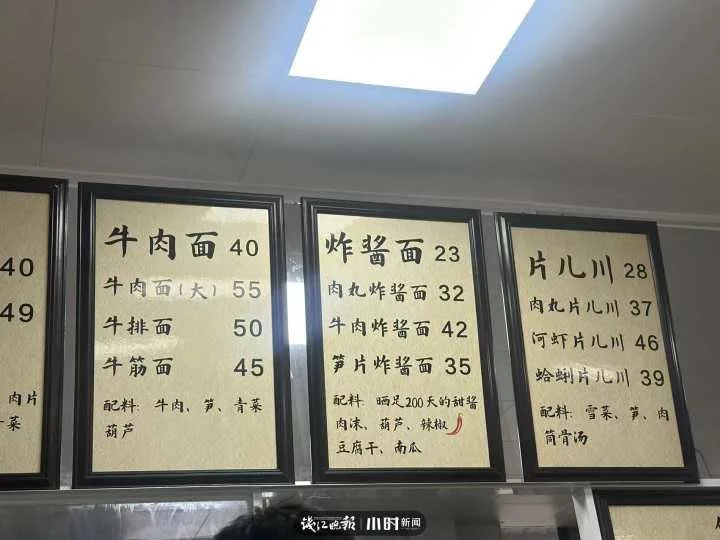 40
49
肉片
菜
牛肉面 40
牛肉面(大) 55
牛排面 50
牛筋面 45
配料: 牛肉、笋、青菜
葫芦
炸酱面 23
肉丸炸酱面 32
牛肉炸酱面 42
笋片炸酱面 35
配料: 晒足200天的甜酱
肉沫、葫芦、辣椒
豆腐干、南瓜
片儿川 28
肉丸片儿川 37
河虾片儿川 46
蛤蜊片儿川 39
配料: 雪菜、笋、肉
筒骨汤
钱江晚报 小时新闻